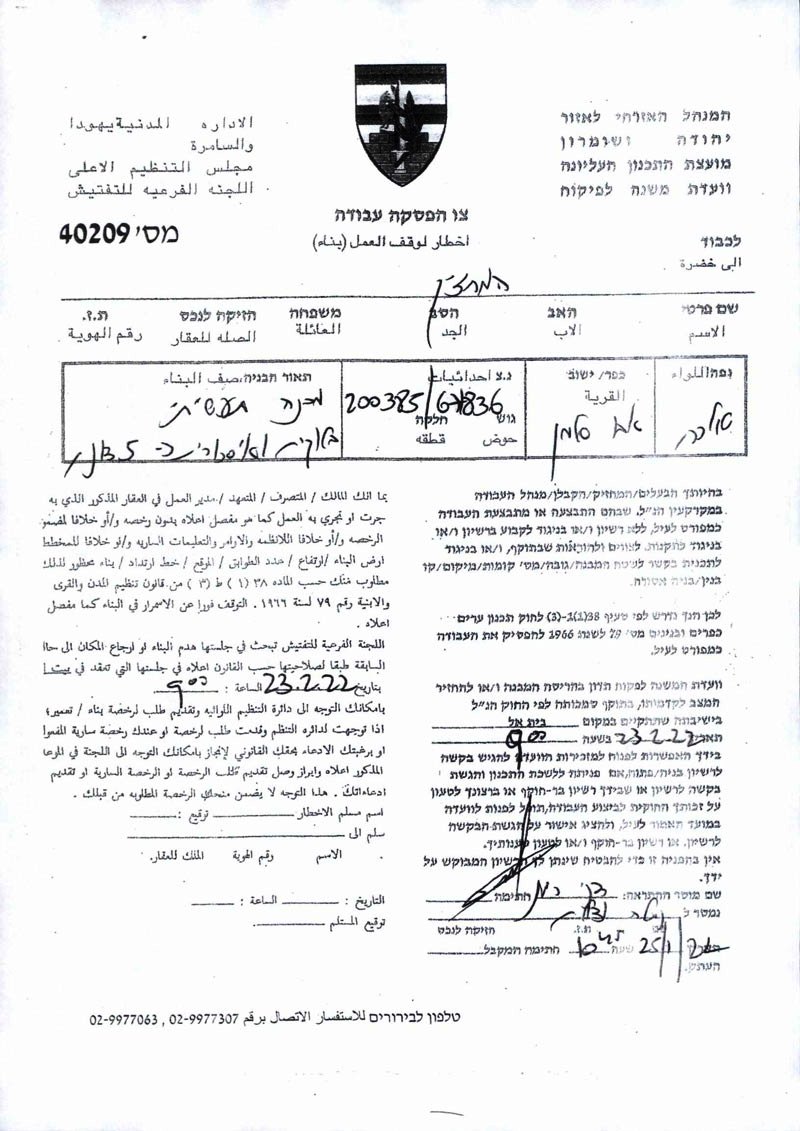 המנהל האזרחי לאזור
יהודה ושומרון
מועצת התכנון העליונה
וועדת משנה לפיקוח
الاداره المدنية يهودا
والسامرة
مجلس التنظيم الاعلى
اللجنه الفرعيه للتفتيش
צו הפסקה עבודה
اخطار لوقف العمل (بناء)
מס' 40209
לכבוד
الى حضرة
המחזיק
שם פרטי האב הסב משפחה הזיקה לנכס ת.ז.
الاسم الاب الجد العائلة الصله للعقار رقم الهوية
נפה اللواء
כפר/ ישוב القرية
נ.צ احداثيات
200385/67836
גוש חלקה
حوض قطقه
תאור הבניה, صيف البناء
מבנה תעשייתי
בהיותך הבעלים/המחזיק/הקבלן/מנהל העבודה
במקרקעין הנ"ל, שבהם התבצעה או מתבצעת העבודה
כמפורט לעיל, ללא רשיון ו/או בניגוד לקבוע ברשיון ו/או
בניגוד לתקנות, לצווים ולהוראות שבתוקף, ו/או בניגוד
לתכנית בקשר לשטח המבנה/גובה/מס' קומות/מיקום/קו
בנין/בניה אסורה.
לכן הנך נדרש לפי סעיף 38(1)-(3) לחוק תכנון ערים
כפרים ובנינים מס' 79 לשנת 1966 להפסיק את העבודה
כמפורט לעיל.
וועדת המשנה לפקוח תדון בהריסת המבנה ו/או להחזיר
המצב לקדמותו, בתוקף סמכותה לפי החוק הנ"ל
בישיבתה שתתקיים במקום בית אל
תאריך 23.2.22 בשעה 9:00
בידך האפשרות לפנות למזכירות הוועדה להגיש בקשה
לרשיון בניה/פתוח, אם פניתה ללשכת התכנון והגשת
בקשה לרשיון או שבידך רשיון בר-תוקף או ברצונך לטעון
על זכותך החוקית לביצוע העבודה, תוכל לפנות לוועדה
במועד האמור לעיל, ולהציג אישור על הגשת הבקשה
לרשיון, או רשיון בר-תוקף ו/או לטעון טענותיך.
אין בהפניה זו כדי להבטיח שינתן לך הרשיון המבוקש על
ידך.
שם מוסר ההתראה: חתימה
נמסר ל
ת.ז. הזיקה לנכס
25/1 שעה 10:45 חתימה המקבל
העתק.
بما انك المالك / المتصرف / المتعهد / مدير العمل في العقار المذكور الذي به
جرت او تجري به العمل كما هو مفصل اعلاه بدون رخصه و/أو خلافا
الرخصه و/أو خلافا للانظمه والاوامر والتعليمات الساريه و/او خلافا للمخطط
ارض البناء /ارتفاع / عدد الطوابق / الموقع / خط ارتداد / بناء محظور لذلك
مطلوب منك حسب الماده ٣٨ (١) ط (٣) من قانون تنظيم المدن والقرى
والابنية رقم ٧٩ لسنة ١٩٦٦. التوقف فورا عن الاسمرار في البناء كما مفصل
اعلاه.
اللجنة الفرعية للتفتيش تبحث في جلستها هدم البناء او ارجاع المكان الى
السابقة طبقا لصلاحيتها حسب القانون اعلاه في جلستها التي تعقد في
بتاريخ 23.2.22 الساعة: 9:00
بامكانك التوجه الى دائرة التنظيم اللوائيه وتقديم طلب لرخصة بناء / تعمير؛
اذا توجهت لدائره التنظم وقدمت طلب لرخصة او عندك رخصة سارية
او برغبتك الادعاء بحقك القانوني لإنجاز بامكانك التوجه الى اللجنة في
المذكور اعلاه وابراز وصل تقديم طلب الرخصة او الرخصة السارية او تقديم
ادعاءاتك. هذا التوجه لا يضمن منحك الرخصة المطلوبه من قبلك.
اسم مسلم الاخطار توقيع:
سلم الى
الاسم رقم الهوية المالك للعقار.
التاريخ: الساعة:
توقيع المستلم
טלפון לבירורים للاستفسار الاتصال برقم 02-9977307 , 02-9977063